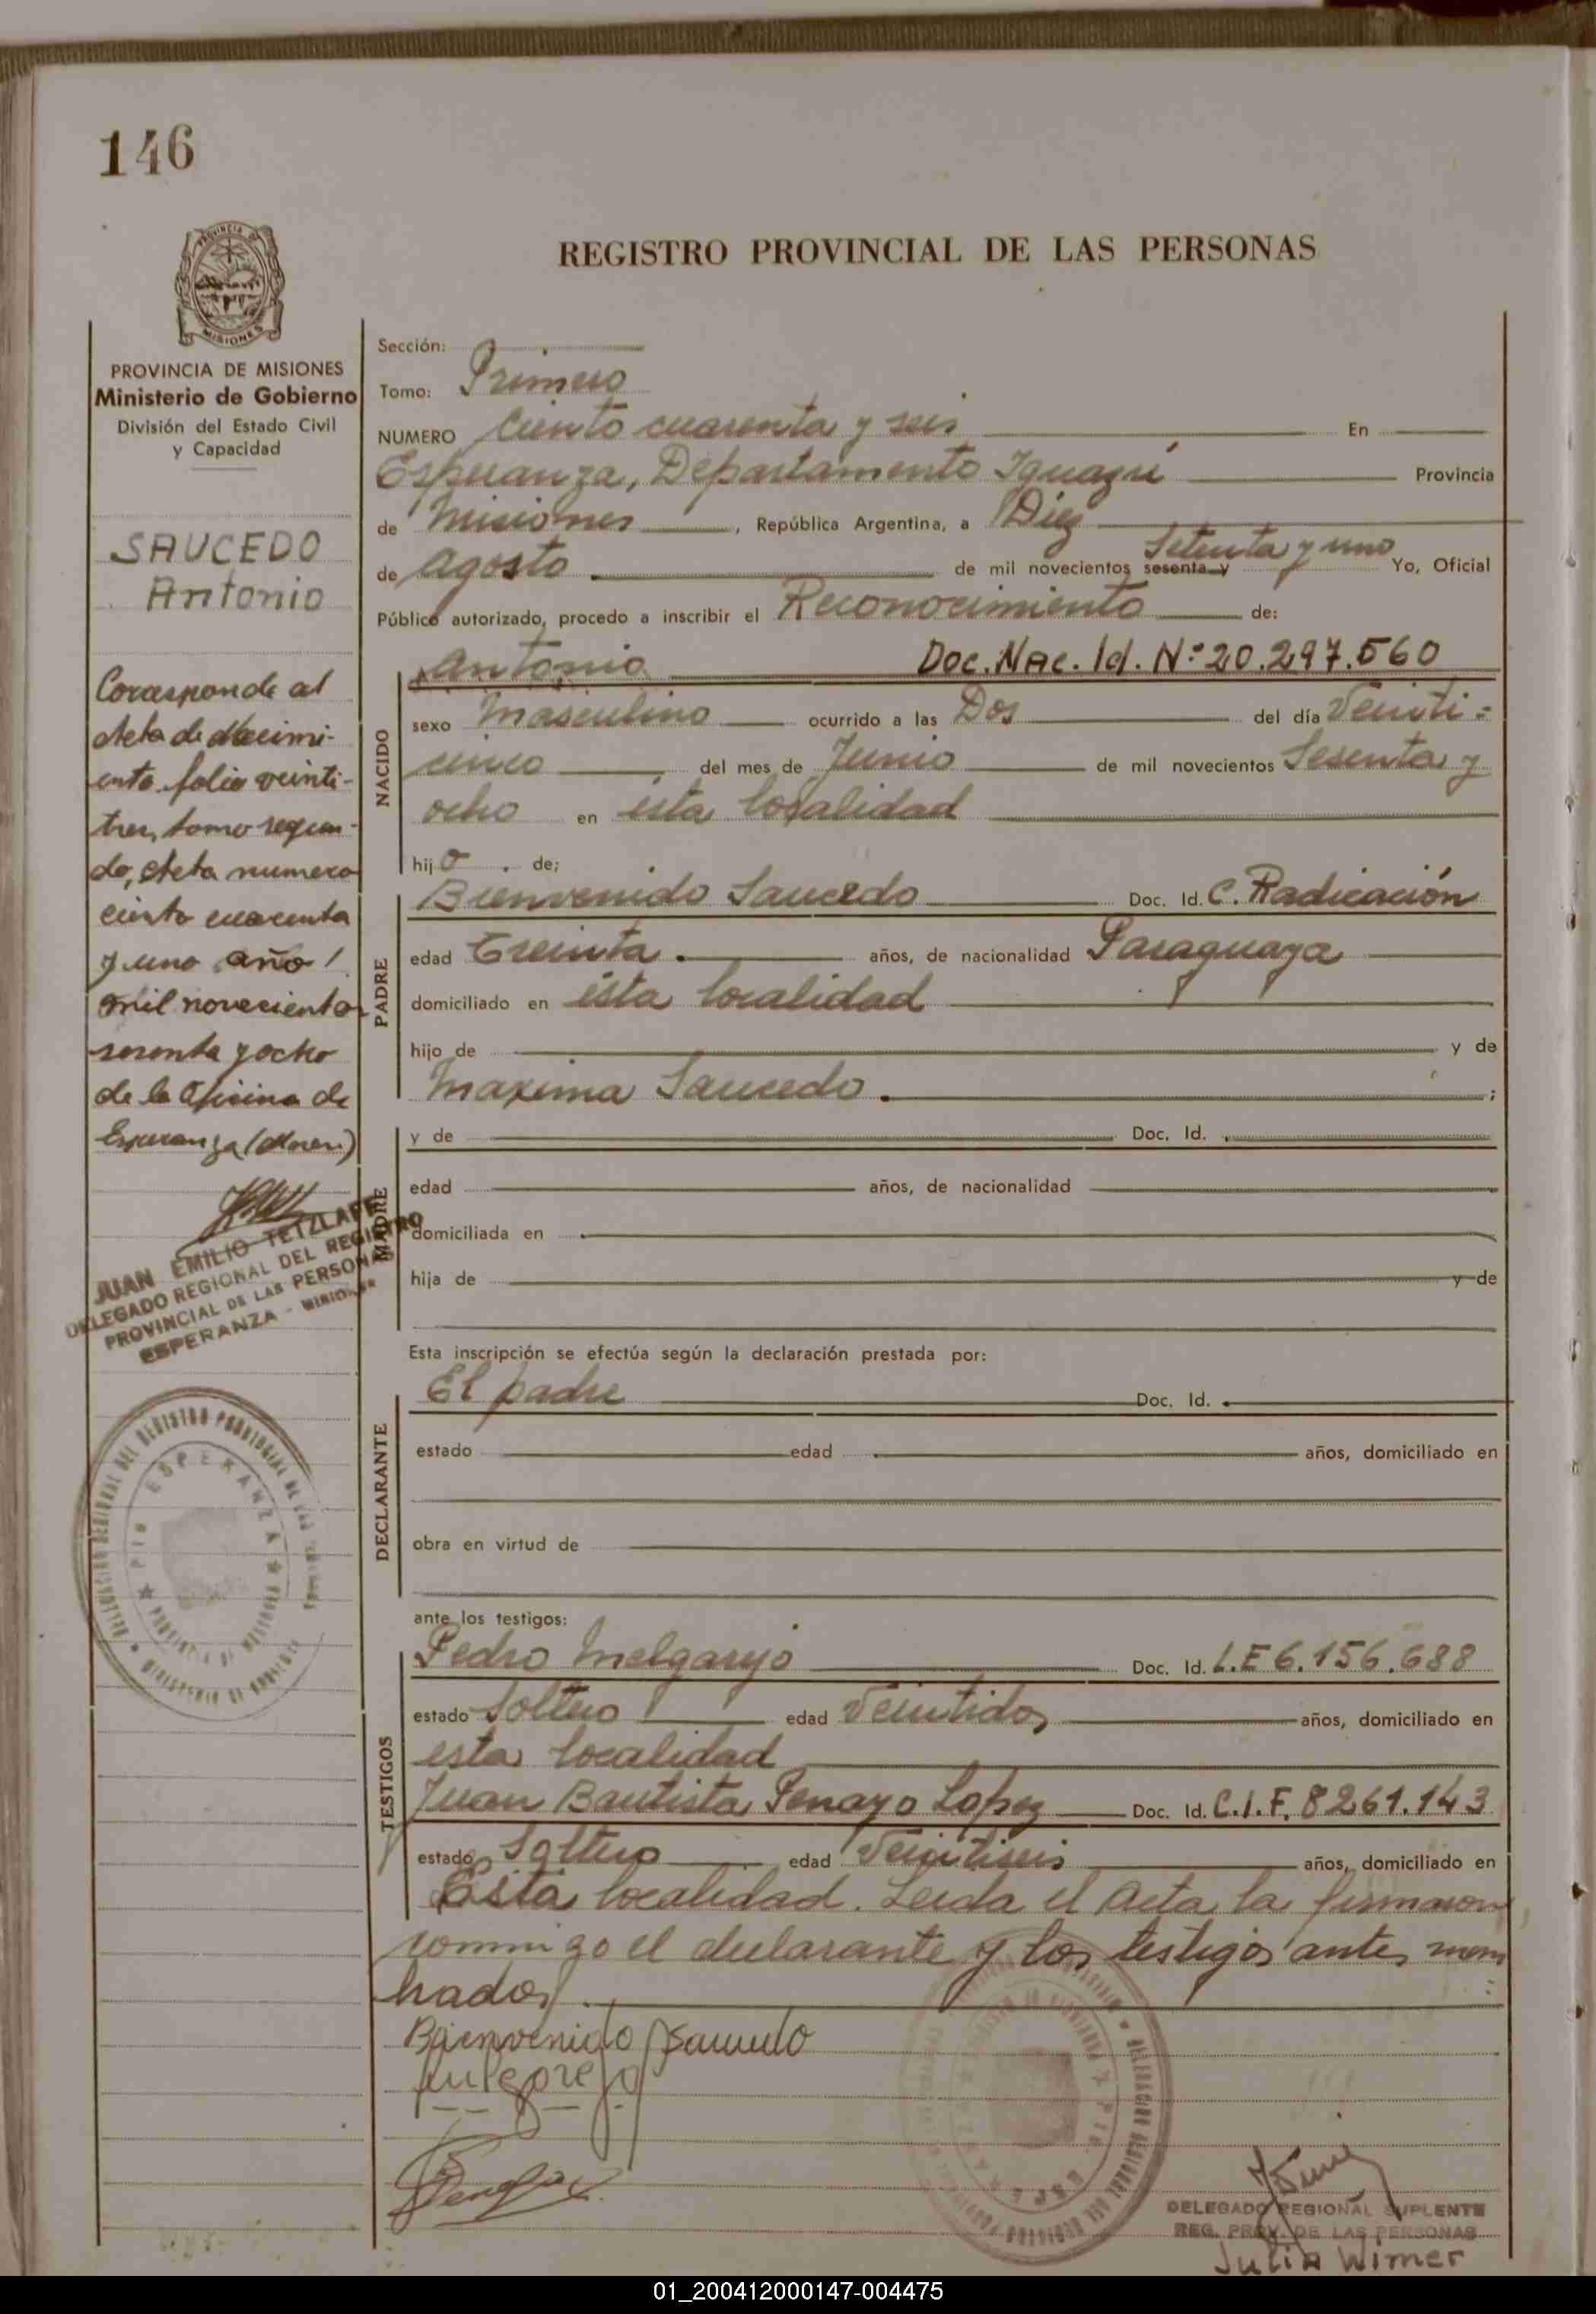 146
REGISTRO PROVINCIAL DE LAS PERSONAS
MISIONES
PROVINCIA DE MISIONES
Ministerio de Gobierno
División del Estado Civil
y Capacidad
SAUCEDO
Antonio
Corresponde al
Acta de Nacimi-
ento folio veinti-
tres, tomo segun-
do, Acta numero
ciento cuarenta
y uno año
mil novecientos
sesenta y ocho
de la Oficina de
Esperanza (Mnes.)
JUAN EMILIO TETZLAFF
DELEGADO REGIONAL DEL REGISTRO
PROVINCIAL DE LAS PERSONAS
ESPERANZA - MISIONES
Sección:
Tomo: Primero
NUMERO Ciento cuarenta y seis En
Esperanza, Departamento Iguazú Provincia
de Misiones, República Argentina, a Diez
de Agosto de mil novecientos sesenta y Setenta y uno Yo, Oficial
Público autorizado, procedo a inscribir el Reconocimiento de:
NACIDO
Antonio Doc. Nac. Id. Nº 20.297.560
sexo Masculino ocurrido a las Dos del día Veinti-
cinco del mes de Junio de mil novecientos Sesenta y
ocho en ésta localidad
hijo de;
PADRE
Bienvenido Saucedo Doc. Id. C. Radicación
edad Treinta años, de nacionalidad Paraguaya
domiciliado en ésta localidad
hijo de y de
Maxima Saucedo. ;
MADRE
y de Doc. Id.
edad años, de nacionalidad
domiciliada en
hija de y de
Esta inscripción se efectúa según la declaración prestada por:
DECLARANTE
El padre Doc. Id.
estado edad años, domiciliado en
obra en virtud de
ante los testigos:
TESTIGOS
Pedro Melgarejo Doc. Id. L.E 6.156.688
estado Soltero edad Veintidos años, domiciliado en
esta localidad
Juan Bautista Penayo Lopez Doc. Id. C.I.F. 8261.143
estado Soltero edad Veintiseis años, domiciliado en
Esta localidad. Leida el Acta la firmaron
conmigo el declarante y los testigos antes nom
brados.
Bienvenido Saucedo
DELEGADO REGIONAL SUPLENTE
REG. PROV. DE LAS PERSONAS
Julia Wimer
01_200412000147-004475